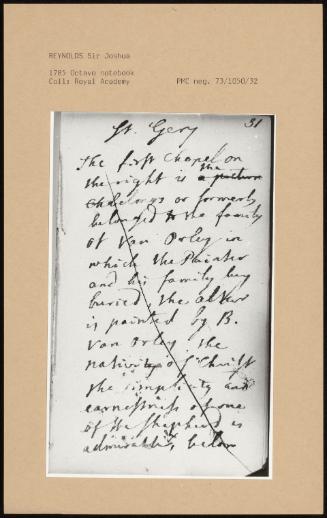 REYNOLDS Sir Joshua
1785 Octavo notebook
Coll: Royal Academy
PMC neg. 73/1050/32
31
St. Gery
The first Chapel on
the right is the a picture
belongs or formerly
belonged to the family
of Van Orley in
which the Painter
and his family lay
buried, the altar
is painted by B.
Van Orley the
nativity of Christ
the simplicity and
earnestness of one
of the Shepherds is
admirable, below